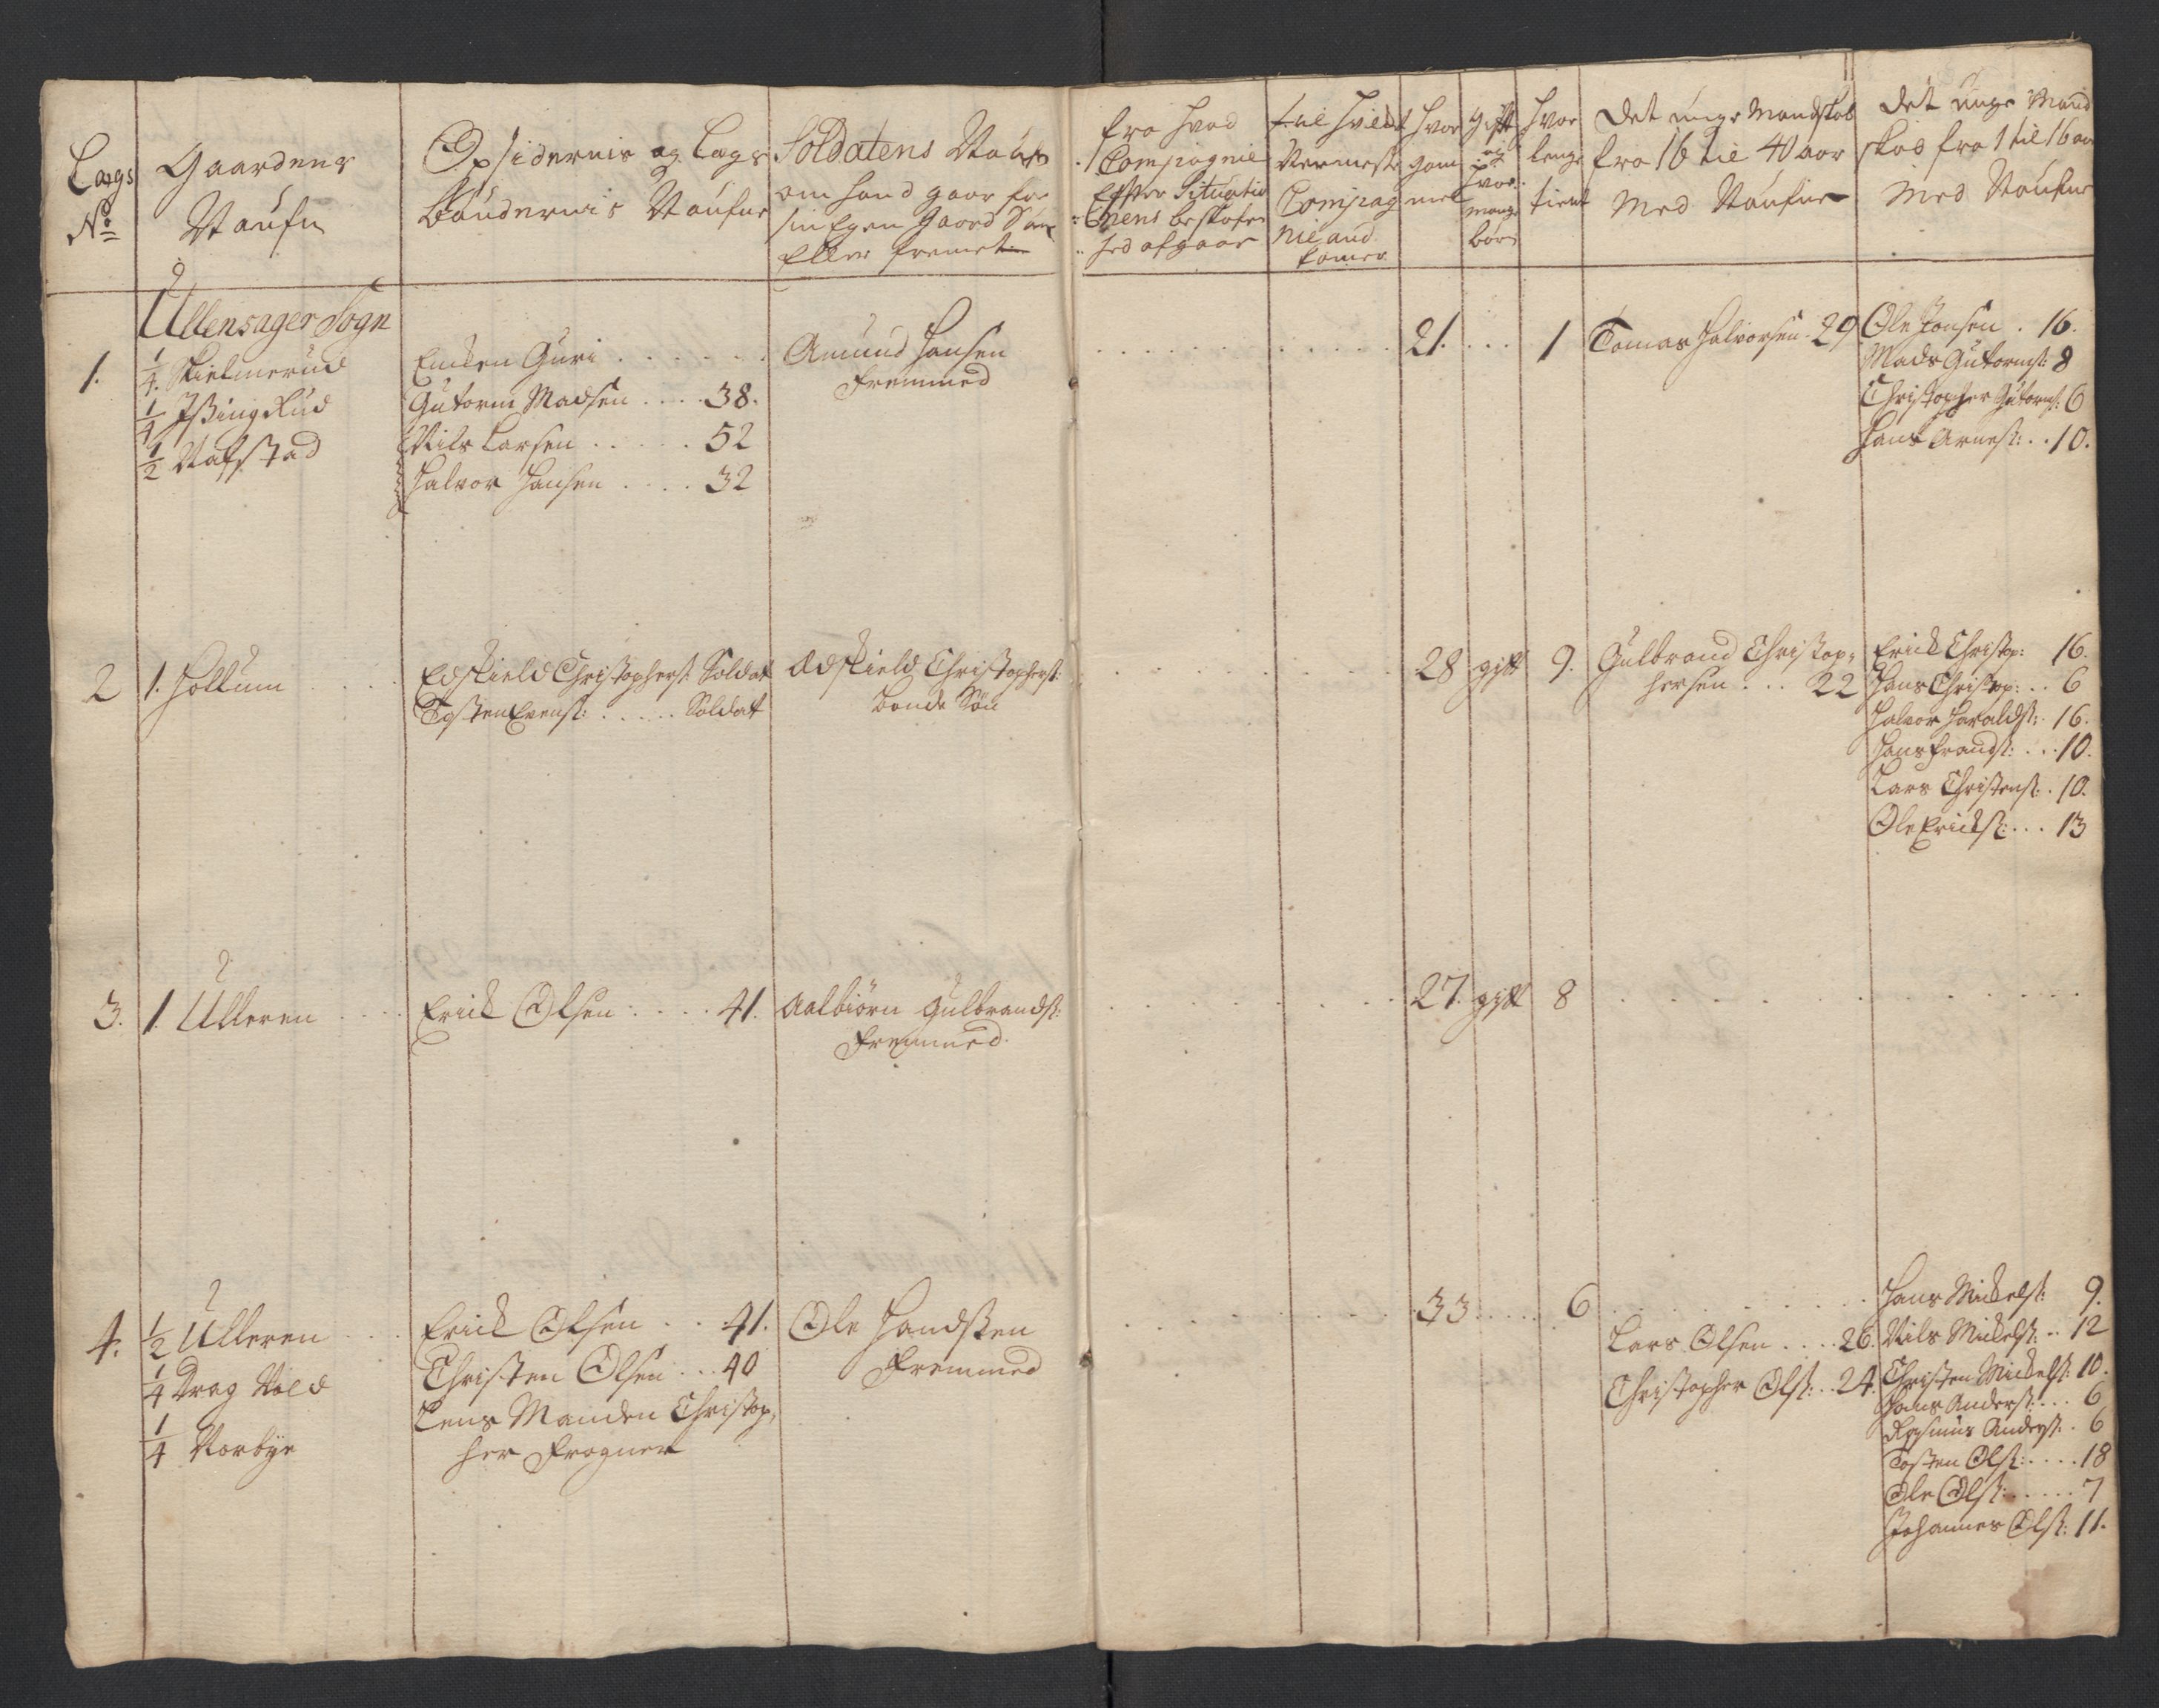 Lægs
No
Gaardens
Naufn
Opsidernis og Lægs
Bøndernis Naufne
Soldatens Naufn
om hand gaar for
sin Egen Gaard Søn
Eller fremet
fra hvad
Compagnie
Effter Situatio
nens beskafen
hed afgaar
til hvilket
Nermeste
Compag
nie and
komer
Hvor
gam
mel
Gift
og
hvor
mange
børn
Hvor
lenge
tient
Det unge Mandskab
fra 16 til 40 aar
Med Naufne
Det unge Mand
skab fra 1 til 16 aar
Med Naufne
Ullensager Sogn
1.
1/4 Skielmerud
1/4 Ißing Rud
1/2 Nafstad
Enken Guri
Gutorm Madsen 38.
Nils Larsen 52
Halvor Hansen 32
Amund Hansen
Fremmed
21. 1
Tomas Halvorsen 29
Ole Jonsen 16.
Mads Gutorms: 8
Christopher Gutorms: 6
Hans Arnes: 10.
2
1. Holtum
Edskield Christophers: Soldat
Tosten Evens: Soldat
Edskield Christophers:
Bonde Søn
28 gift 9.
Gulbrand Christop-
hersen 22
Erick Christop: 16.
Hans Christop: 6
Halvor Haralds: 16.
Hans Frands: 10.
Lars Christens: 10.
Ole Ericks: 13
3.
1. Ulleren
Erick Olsen 41.
Aalbiørn Gulbrands:
Fremmed
27. gift 8
4.
1/2 Ulleren
1/4 Drag Vold
1/4 Norbye
Erick Olsen 41.
Christen Olsen 40
Lens Manden Christop-
her Frogner
Ole Handsten
Fremmed
33 6
Lars Olsen 26.
Christopher Ols: 24.
Hans Mickels: 9.
Nils Mickels: 12
Christen Mickels: 10.
Hans Anders: 6
Rasmus Anders: 6
Tosten Ols: 18
Ole Ols: 7
Johannes Ols: 11.